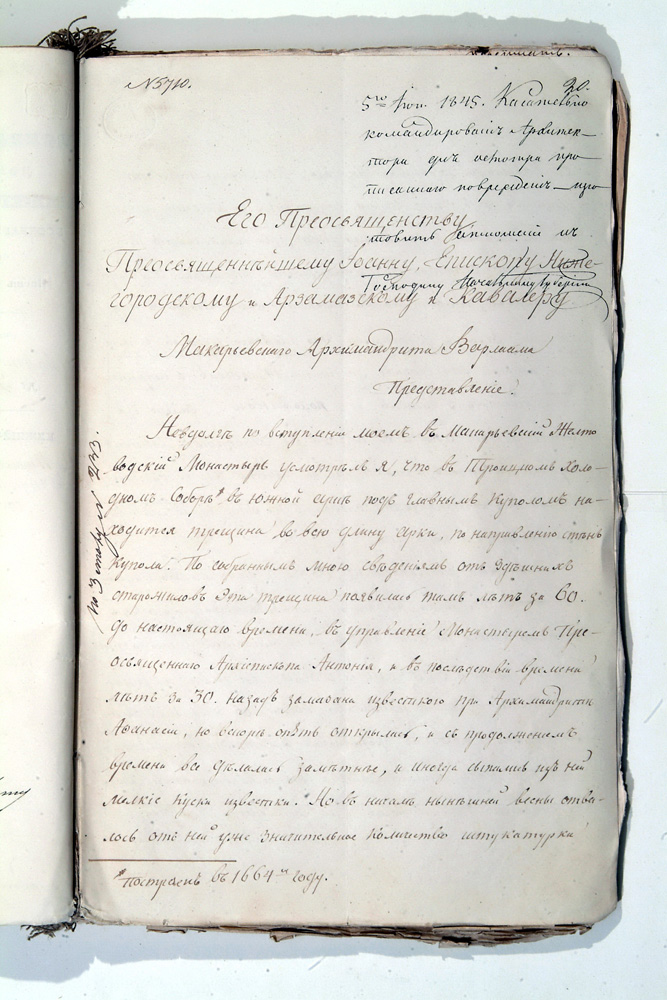 № 5710.
20.
5го Іюн. 1845. Касательно
командированія Архитек-
тора для осмотра про
писаннаго поврежденія
Его Преосвященству
Преосвященнѣйшему Іоанну, Епископу Ниже-
Господину Начальнику Губерніи
городскому и Арзамазскому и Кавалеру
Макарьевскаго Архимандрита Варлаама
Представленіе.
Невдолгѣ по вступленіи моемъ въ Макарьевскій Желто
водскій Монастырь усмотрѣлъ я, что въ Троицкомъ холо-
дномъ Соборѣ* въ южной аркѣ подъ главнымъ куполомъ на-
ходится трещина во всю длину арки, по направленію стѣнъ
купола. По собраннымъ мною свѣденіямъ отъ здѣшнихъ
старожиловъ эта трещина появилась тамъ лѣтъ за 60.
до настоящаго времени, въ управленіе Монастыремъ Пре-
освященнаго Архіепископа Антонія, и въ послѣдствіи времени
лѣтъ за 30. назадъ замазана известкою при Архимандритѣ
Афанасіи, но вскорѣ опять открылась, и съ продолженіемъ
времени все дѣлалась замѣтнѣе, и иногда сыпались изъ ней
мелкіе куски известки. Но въ началѣ нынѣшней весны отва-
лось отъ ней уже значительное количество штукатурки
* Построенъ въ 1664-м году.
по 3 столу № 233.